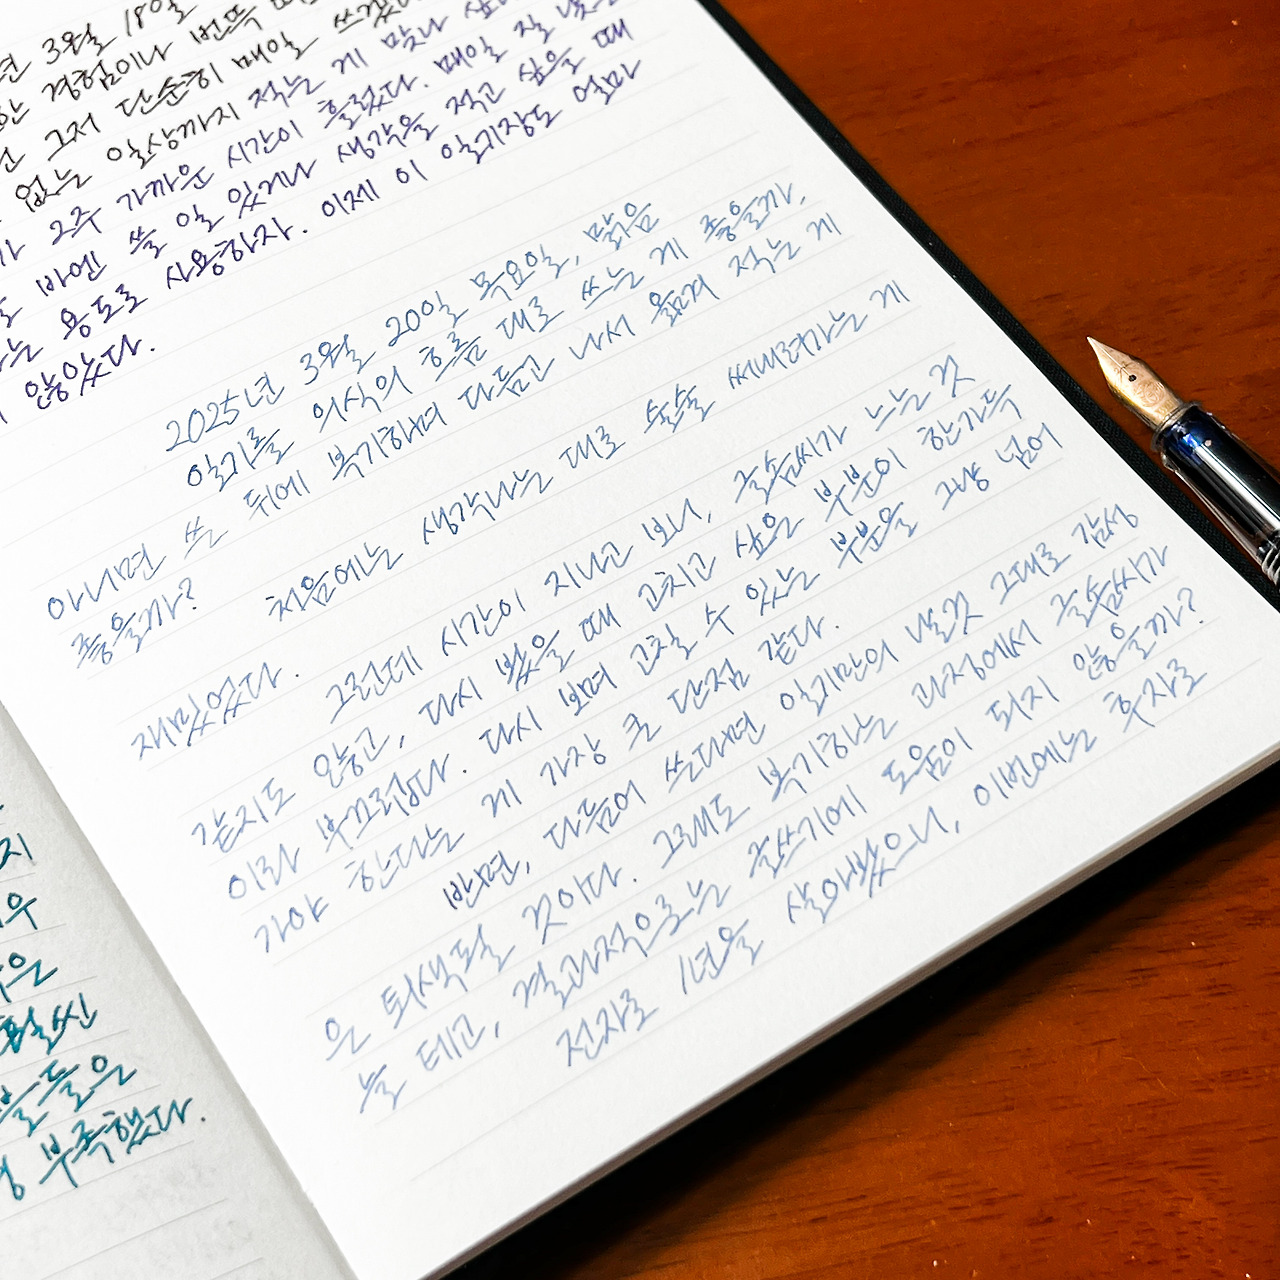 년 3월 18일
경험이나 번뜩
그저 단순히 매일 쓰겠
없는 일상까지 적는 게 맞나 싶
2주 가까운 시간이 흘렀다. 매일 질
바엔 쓸 일 있거나 생각을 적고 싶을 때
는 용도로 사용하자. 이제 이 일기장도 얼마
않았다.
2025년 3월 20일 목요일, 맑음
일기를 의식의 흐름 대로 쓰는 게 좋을까,
아니면 쓴 뒤에 복기하며 다듬고 나서 옮겨 적는 게
좋을까?
처음에는 생각나는 대로 술술 써내려가는 게
재밌었다.
그런데 시간이 지나고 보니, 글솜씨가 느는 것
같지도 않고, 다시 봤을 때 고치고 싶은 부분이 한가득
이라 부끄럽다. 다시 보며 고칠 수 있는 부분을 그냥 넘어
가야 한다는 게 가장 큰 단점 같다.
반면, 다듬어 쓰다보면 일기만의 날것 그대로 감성
은 퇴색될 것이다. 그래도 복기하는 과정에서 글솜씨가
늘 테고, 결과적으로는 글쓰기에 도움이 되지 않을까?
전자로 1년을 살아봤으니, 이번에는 후자로
지
우
은
훨씬
들은
부족했다.